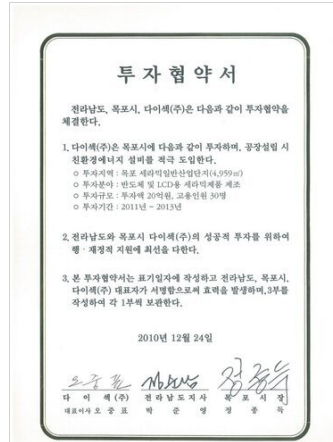 투자협약서
전라남도, 목포시, 다이섹(주)은 다음과 같이 투자협약을
체결한다.
1. 다이섹(주)은 목포시에 다음과 같이 투자하며, 공장설립 시
친환경에너지 설비를 적극 도입한다.
○ 투자지역 : 목포 세라믹일반산업단지(4,959㎡)
○ 투자분야 : 반도체 및 LCD용 세라믹제품 제조
○ 투자규모 : 투자액 20억원, 고용인원 30명
○ 투자기간 : 2011년 ~ 2013년
2. 전라남도와 목포시 다이섹(주)의 성공적 투자를 위하여
행·재정적 지원에 최선을 다한다.
3. 본 투자협약서는 표기일자에 작성하고 전라남도, 목포시,
다이섹(주) 대표자가 서명함으로써 효력을 발생하며, 3부를
작성하여 각 1부씩 보관한다.
2010년 12월 24일
오중표 정종득
다이섹(주) 전라남도지사 목포시장
대표이사 오중표 박준영 정종득